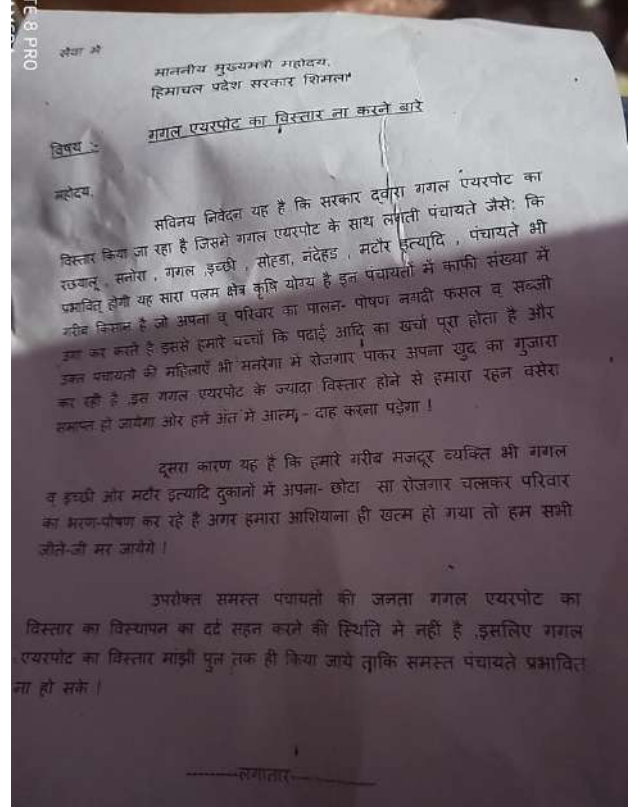 TE 8 PRO
सेवा मे
माननीय मुख्यमंत्री महोदय,
हिमाचल प्रदेश सरकार शिमला
विषय :- गगल एयरपोट का विस्तार ना करने बारे
महोदय,
सविनय निवेदन यह है कि सरकार द्वारा गगल एयरपोट का
विस्तार किया जा रहा है जिसमे गगल एयरपोट के साथ लगती पंचायते जैसे: कि
रछयालू , सनोरा , गगल ,इच्छी , सोहडा, नंदेहड , मटौर इत्यादि , पंचायते भी
प्रभावित होगी यह सारा पलम क्षेत्र कृषि योग्य है इन पंचायतों में काफी संख्या में
गरीब किसान है जो अपना व् परिवार का पालन- पोषण नगदी फसल व सब्जी
उगा कर करते है इससे हमारे बच्चों कि पढाई आदि का खर्चा पूरा होता है और
उक्त पंचायतो की महिलाएँ भी मनरेगा में रोजगार पाकर अपना खुद का गुजारा
कर रही है ,इस गगल एयरपोट के ज्यादा विस्तार होने से हमारा रहन वसेरा
समाप्त हो जायेगा ओर हमे अंत मे आत्म - दाह करना पड़ेगा !
दूसरा कारण यह है कि हमारे गरीब मजदूर व्यक्ति भी गगल
व् इच्छी ओर मटौर इत्यादि दुकानों में अपना- छोटा सा रोजगार चलाकर परिवार
का भरण-पोषण कर रहे है अगर हमारा आशियाना ही खत्म हो गया तो हम सभी
जीते-जी मर जायेंगे !
उपरोक्त समस्त पंचायतो की जनता गगल एयरपोट का
विस्तार का विस्थापन का दर्द सहन करने की स्थिति मे नहीं है ,इसलिए गगल
एयरपोट का विस्तार मांझी पुल तक ही किया जाये ताकि समस्त पंचायते प्रभावित
ना हो सके !
----------लगातार----------------